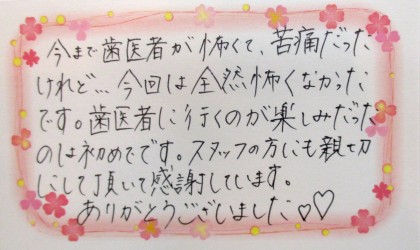 今まで歯医者が怖くて、苦痛だった
けれど…今回は全然怖くなかった
です。歯医者に行くのが楽しみだった
のは初めてです。スタッフの方にも親切
にして頂いて感謝しています。
ありがとうございました♡♡